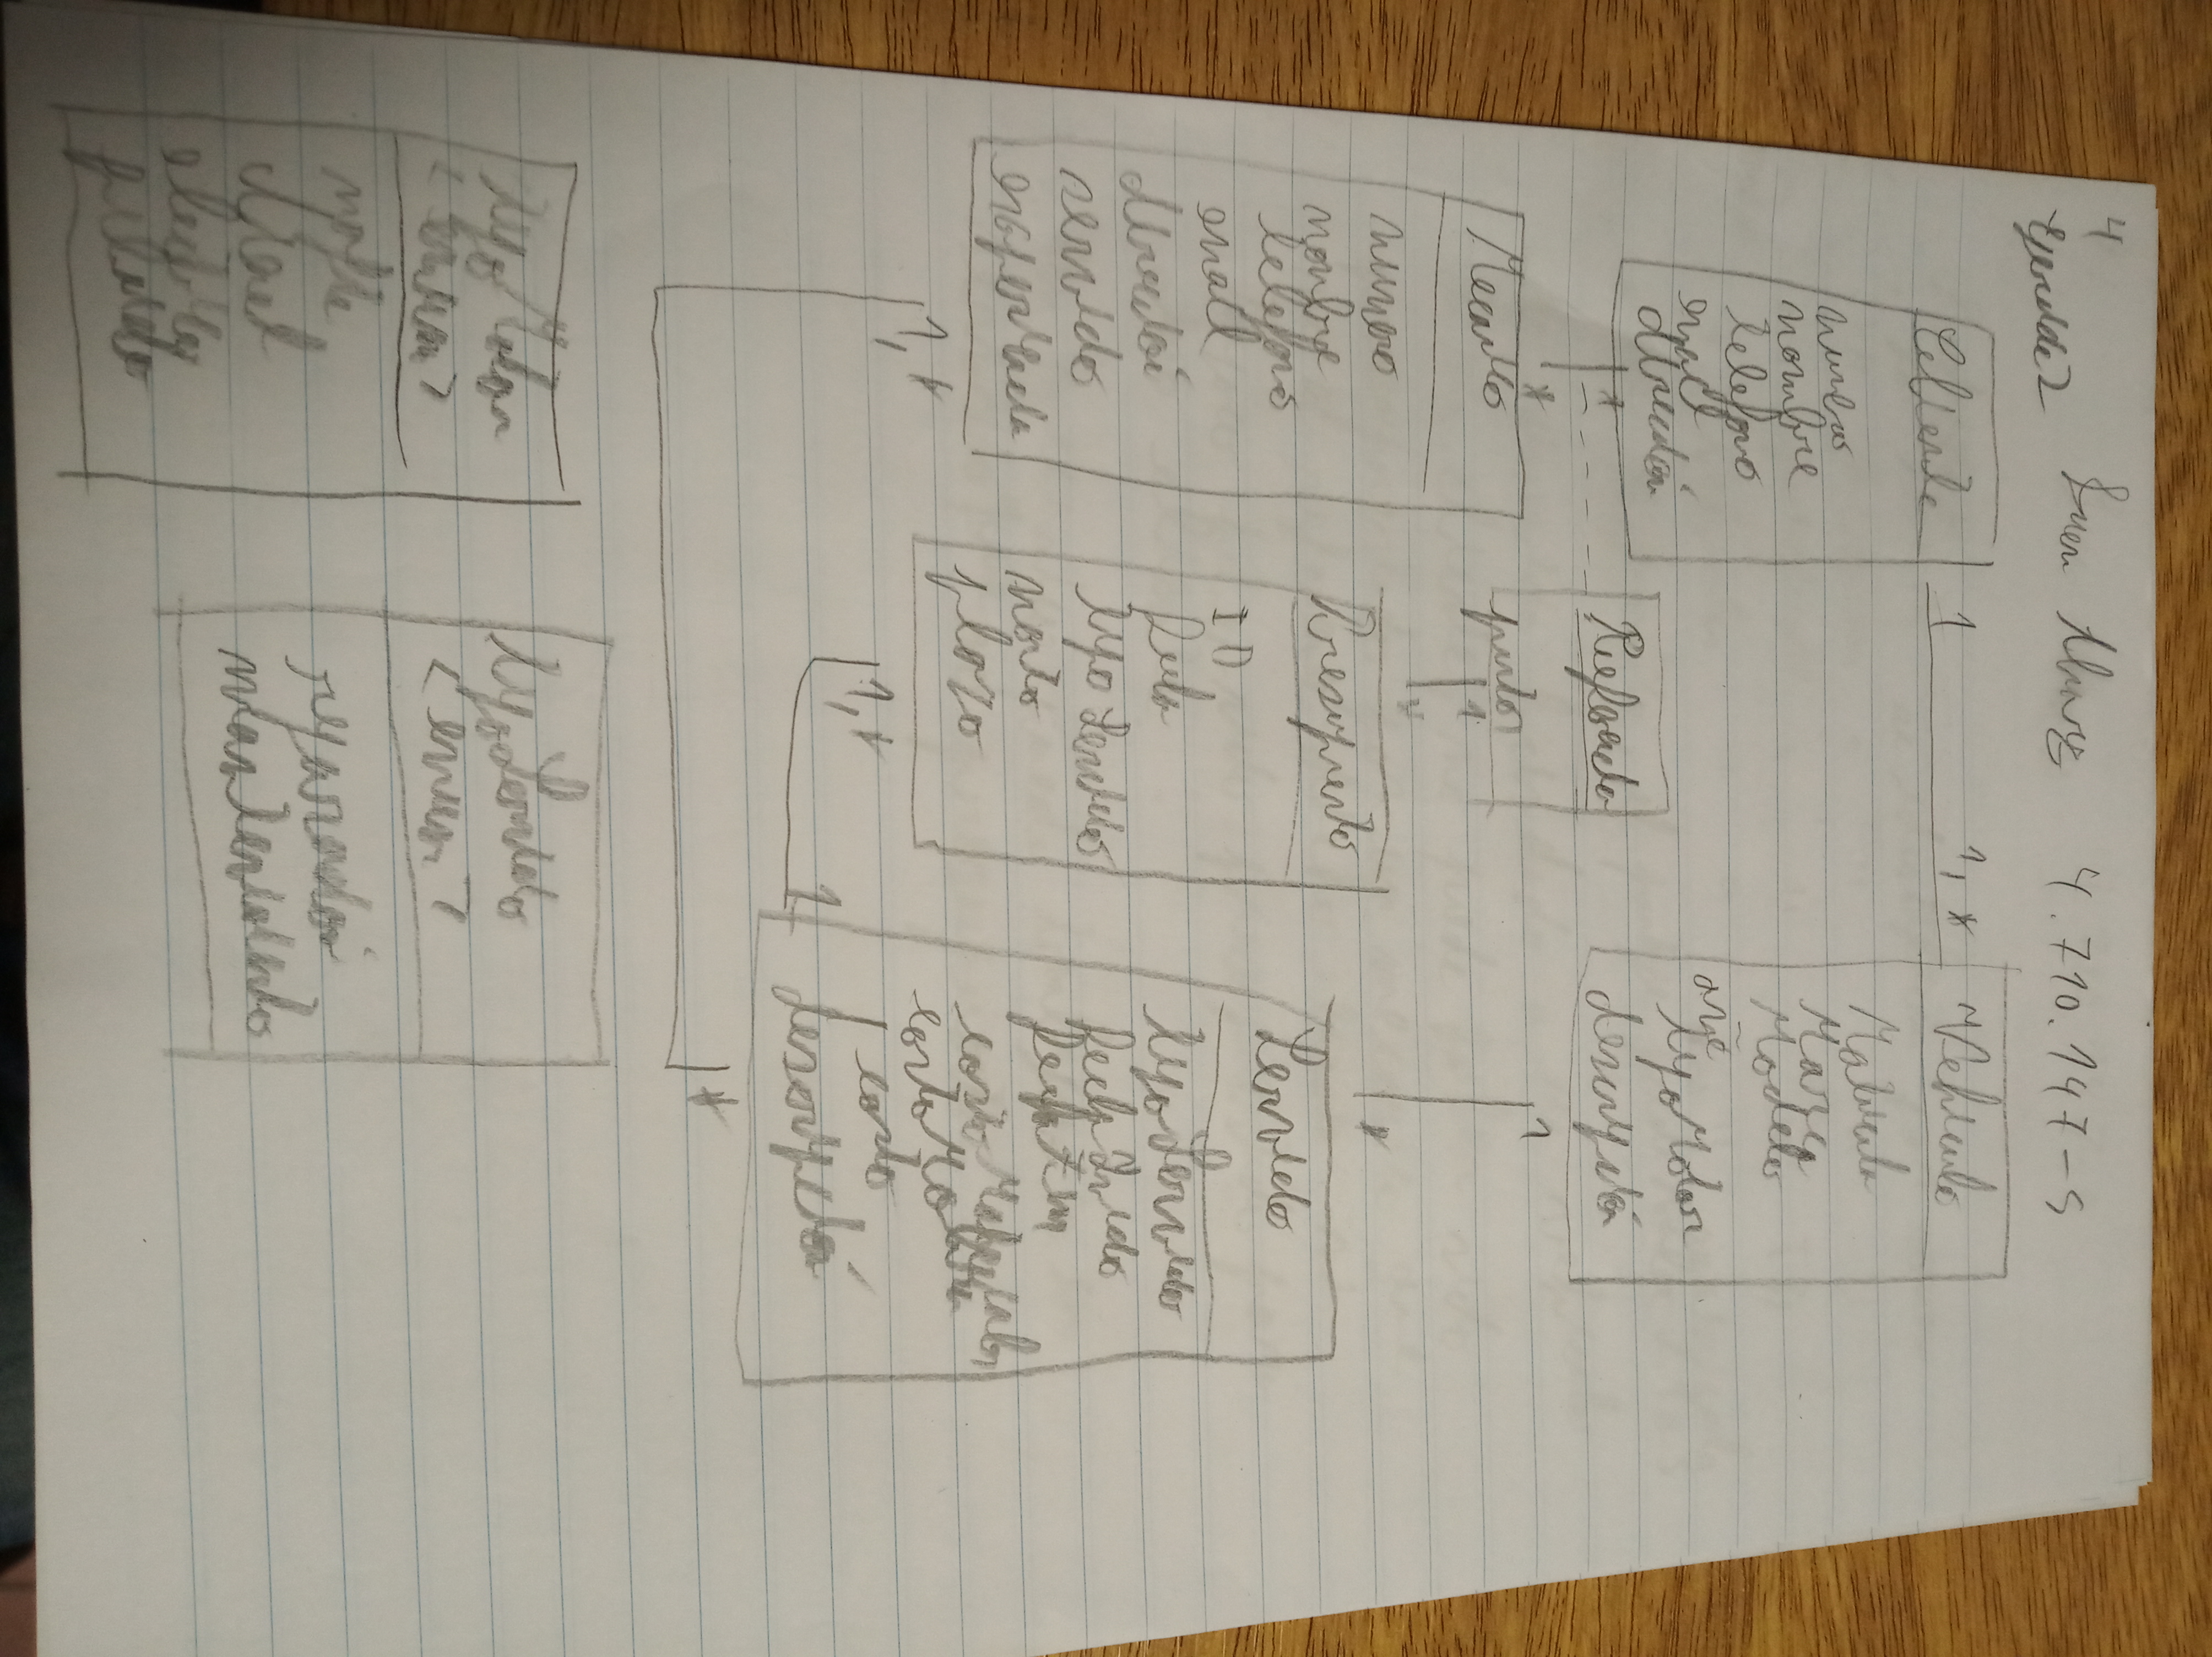 4
Ejercicio 2
4.710.147-5
Cliente
1
1, *
Vehiculo
numero
nombre
telefono
email
dirección
Matricula
Marca
Modelo
año
tipoMotor
descripción
1
*
Preferencia
puntos
1
*
1
*
Mecanico
numero
nombre
telefono
email
dirección
servicio
experiencia
Presupuesto
ID
fecha
tipo Servicio
monto
plazo
Servicio
tipoServicio
fecha Inicio
fecha Fin
costo Materiales
costo
descripción
1, *
1, *
1
*
tipo Motor
< enum >
nafta
diesel
electrico
tipoServicio
< enum >
reparación
mantenimiento